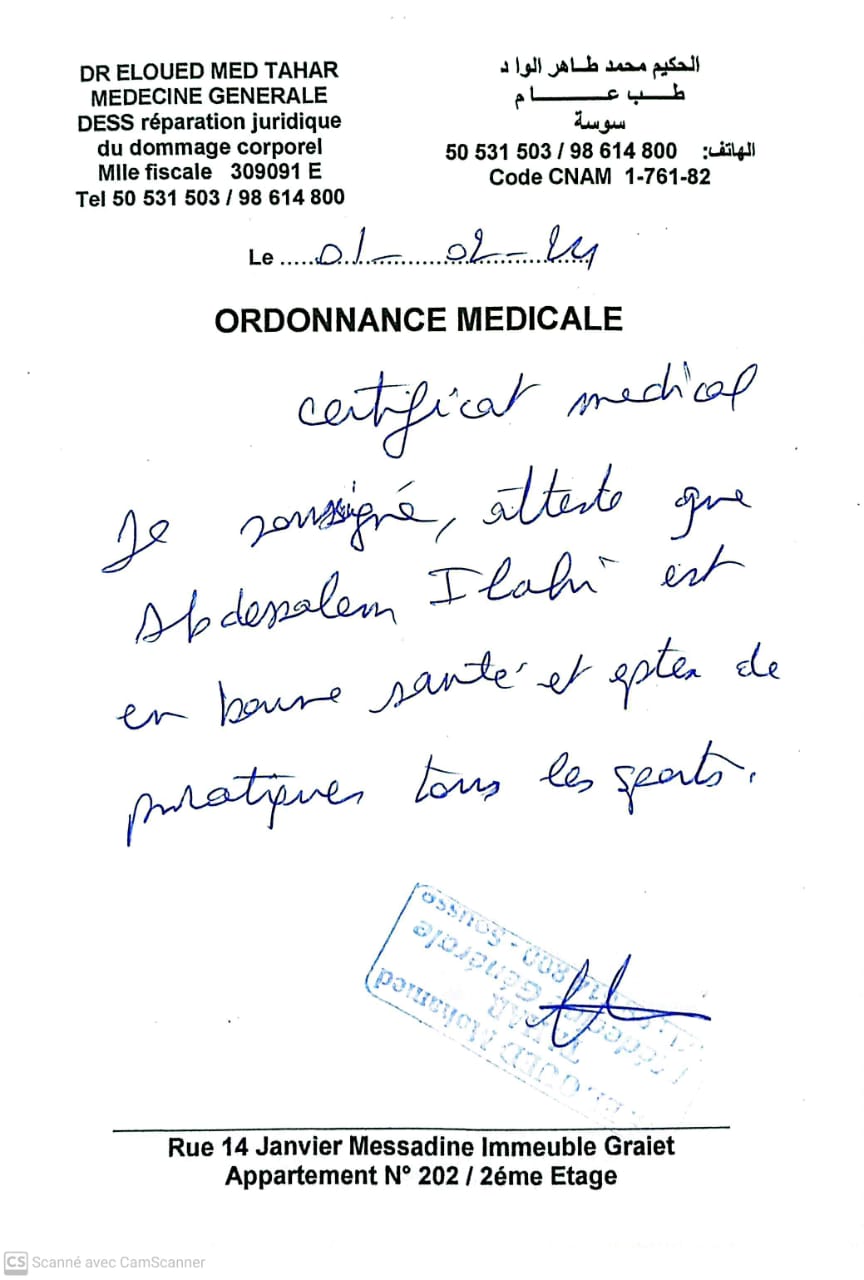 DR ELOUED MED TAHAR
MEDECINE GENERALE
DESS réparation juridique
du dommage corporel
Mlle fiscale 309091 E
Tel 50 531 503 / 98 614 800
الحكيم محمد طاهر الواد
طب عام
سوسة
الهاتف: 50 531 503 / 98 614 800
Code CNAM 1-761-82
Le 01-02-24
ORDONNANCE MEDICALE
certificat medical
Je soussigné, atteste que
Abdessalem Ilahi est
en bonne santé et apte de
pratiquer tous les sports.
ELOUED Mohamed
TAHAR
Générale
800 - Sousse
Rue 14 Janvier Messadine Immeuble Graiet
Appartement N° 202 / 2éme Etage
CS Scanné avec CamScanner